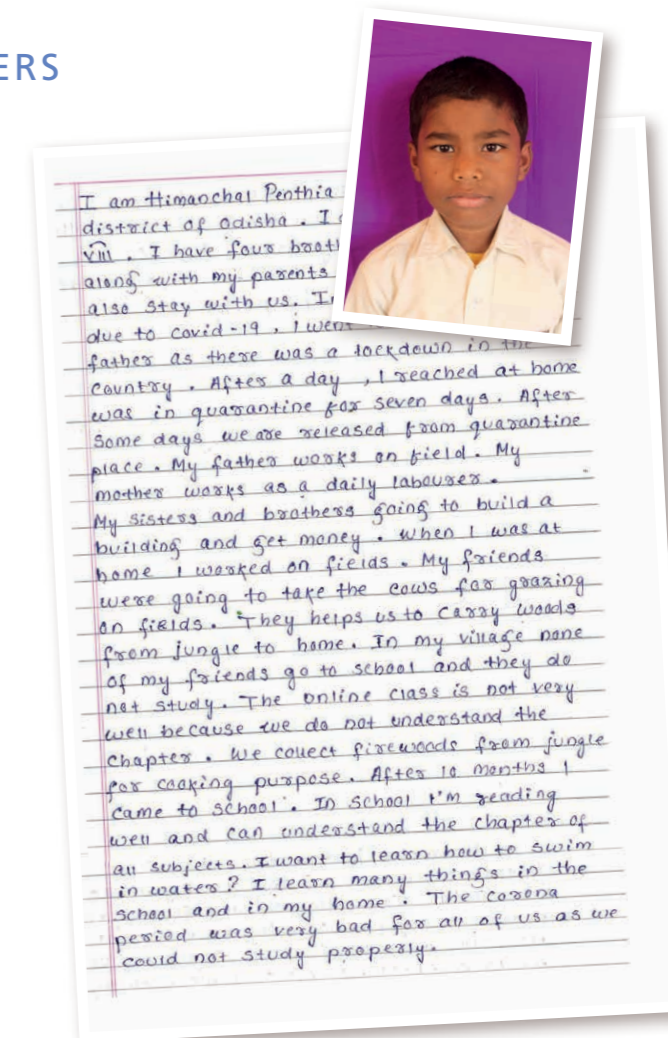 ERS
I am Himanchal Penthia
district of Odisha. I
VIII. I have four
along with my parents
also stay with us.
due to covid-19, i went
father as there was a lockdown in the
country. After a day, I reached at home
was in quarantine for seven days. After
Some days we are released from quarantine
place. My father works on field. My
mother works as a daily labourer.
My sisters and brothers going to build a
building and get money. When I was at
home I worked on fields. My friends
were going to take the cows for grazing
on fields. They helps us to carry woods
from jungle to home. In my village none
of my friends go to school and they do
not study. The online class is not very
well because we do not understand the
chapter. We collect firewoods from jungle
for cooking purpose. After 10 months I
came to school. In school I'm reading
well and can understand the chapter of
all subjects. I want to learn how to swim
in water? I learn many things in the
school and in my home. The corona
period was very bad for all of us as we
could not study properly.